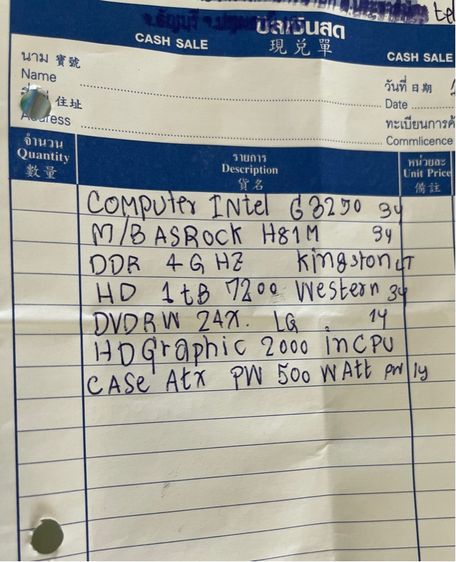 บิลเงินสด
CASH SALE
現兑單
CASH SALE
นาม 寶號
Name
วันที่ 日期
Date
住址
Address
ทะเบียนการค้
Commlicence
จำนวน
Quantity
數量
รายการ
Description
貨名
หน่วยละ
Unit Price
備註
COMPUter INtel G3250 3y
M/B ASROCK H81M 3y
DDR 4G HZ kingston LT
HD 1tB 7200 Western 3y
DVDRW 24X. LG . 1y
HD Graphic 2000 in CPU
CASE Atx PW 500 WAtt PW 1y